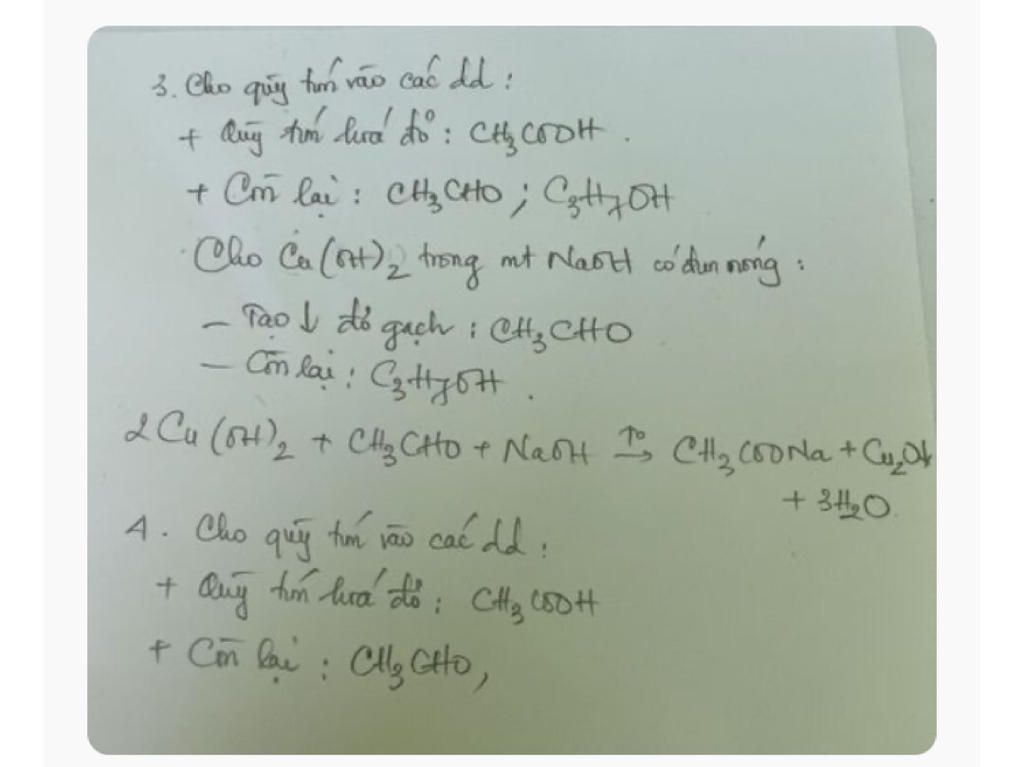 3. Cho quỳ tím vào các dd :
+ Quỳ tím hoá đỏ : CH₃COOH .
+ Còn lại : CH₃CHO ; C₃H₇OH
Cho Cu(OH)₂ trong mt NaOH có đun nóng :
– Tạo ↓ đỏ gạch : CH₃CHO
– Còn lại : C₃H₇OH .
2Cu(OH)₂ + CH₃CHO + NaOH →(t°) CH₃COONa + Cu₂O↓
+ 3H₂O.
4. Cho quỳ tím vào các dd :
+ Quỳ tím hoá đỏ : CH₃COOH
+ Còn lại : CH₃CHO,